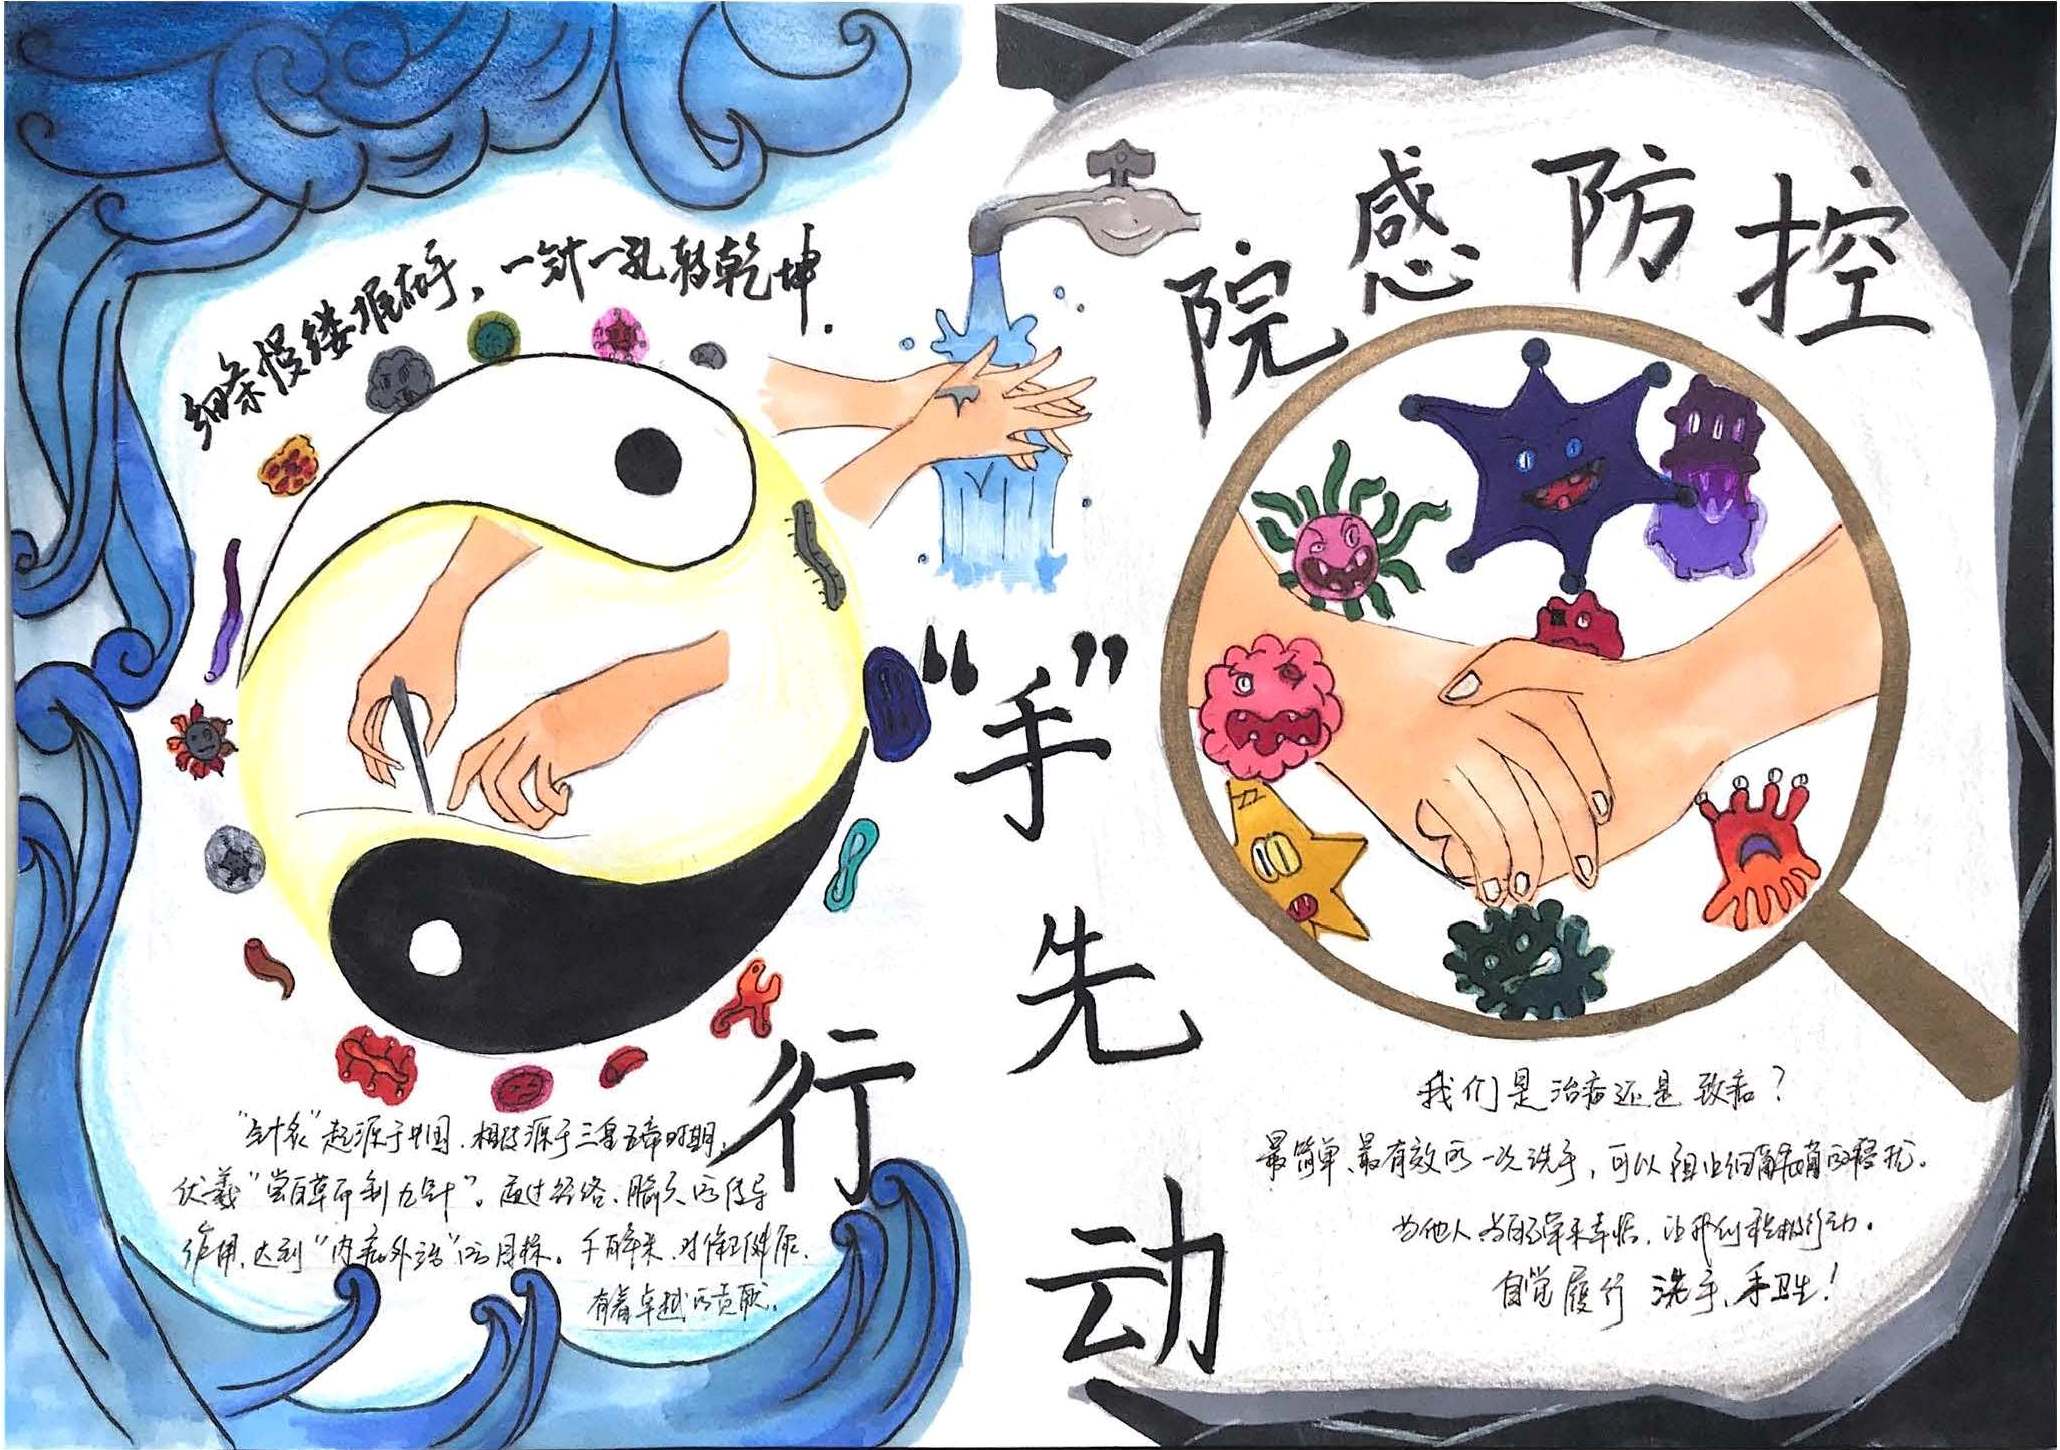 细条慢缕堆在手，一针一孔转乾坤.
院感防控
“手”先行动
“针灸”起源于中国、相传源于三皇五帝时期，
伏羲“尝百草而制九针”。通过经络、腧穴的传导
作用，达到“内病外治”的目标。千百年来，对保卫健康，
有着卓越的贡献。
我们是治病还是致病？
最简单、最有效的一次洗手，可以阻止细菌病毒的骚扰。
为他人为自己带来幸福，让我们积极行动。
自觉履行 洗手、手卫生！